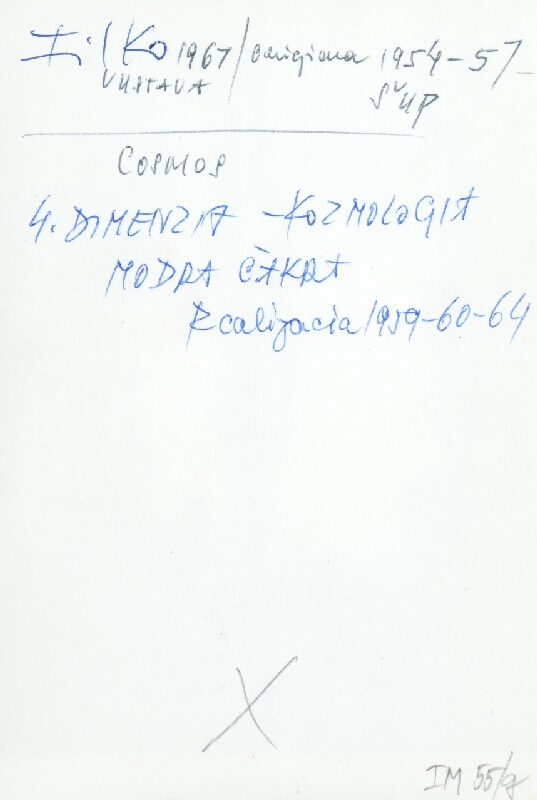 Filko 1967/ 1954-57
VÝSTAVA ŠVUP
COSMOS
4. DIMENZIA - KOZMOLOGIA
MODRA ČAKRA
Realizacia 1959-60-64
X
IM 55/g